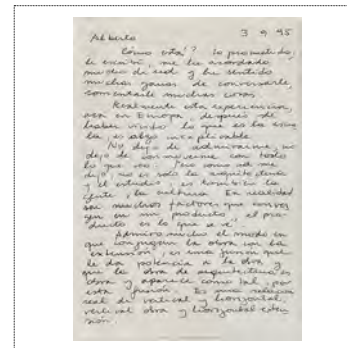 Alberto 3 9 95
Cómo está? lo prometido,
le escribí, me he acordado
mucho de ud y he sentido
muchas ganas de conversarle,
comentarle muchas cosas.
Realmente esta experiencia,
acá en Europa, después de
haber vivido lo que es la escue
la, es algo inexplicable.
No dejo de admirarme, no
dejo de conmoverme con todo
lo que veo. Tal como ud me
dijo, no es solo la arquitectura
y el estudio, es también la
gente, la cultura. En realidad
son muchos factores que conver
gen en un producto, el pro-
ducto es lo que se ve.
Admiro mucho el modo en
que conjugan la obra con la
extensión, es una fusión que
le da potencia a la obra y
que la obra de arquitectura es
obra y aparece como tal, por
esta fusión. Es una relación
real de vertical y horizontal,
vertical obra y horizontal exten
sión.